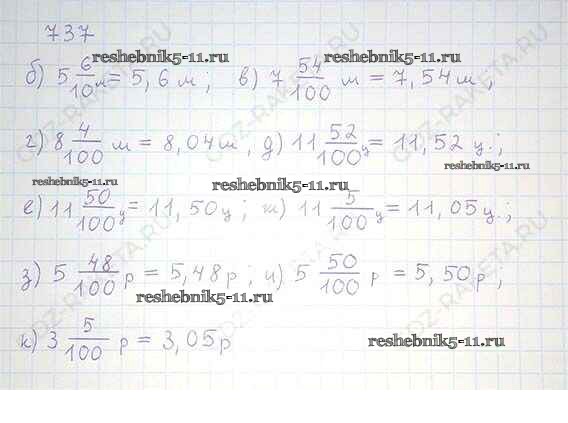 737
reshebnik5-11.ru reshebnik5-11.ru
б) 5 6/10 м = 5,6 м; в) 7 54/100 м = 7,54 м;
г) 8 4/100 м = 8,04 м, д) 11 52/100 ц = 11,52 ц.;
reshebnik5-11.ru
reshebnik5-11.ru reshebnik5-11.ru
е) 11 50/100 ц = 11,50 ц; ж) 11 5/100 ц = 11,05 ц.;
з) 5 48/100 р = 5,48 р; и) 5 50/100 р = 5,50 р,
reshebnik5-11.ru
к) 3 5/100 р = 3,05 р
reshebnik5-11.ru
GDZ-RAKETA.RU